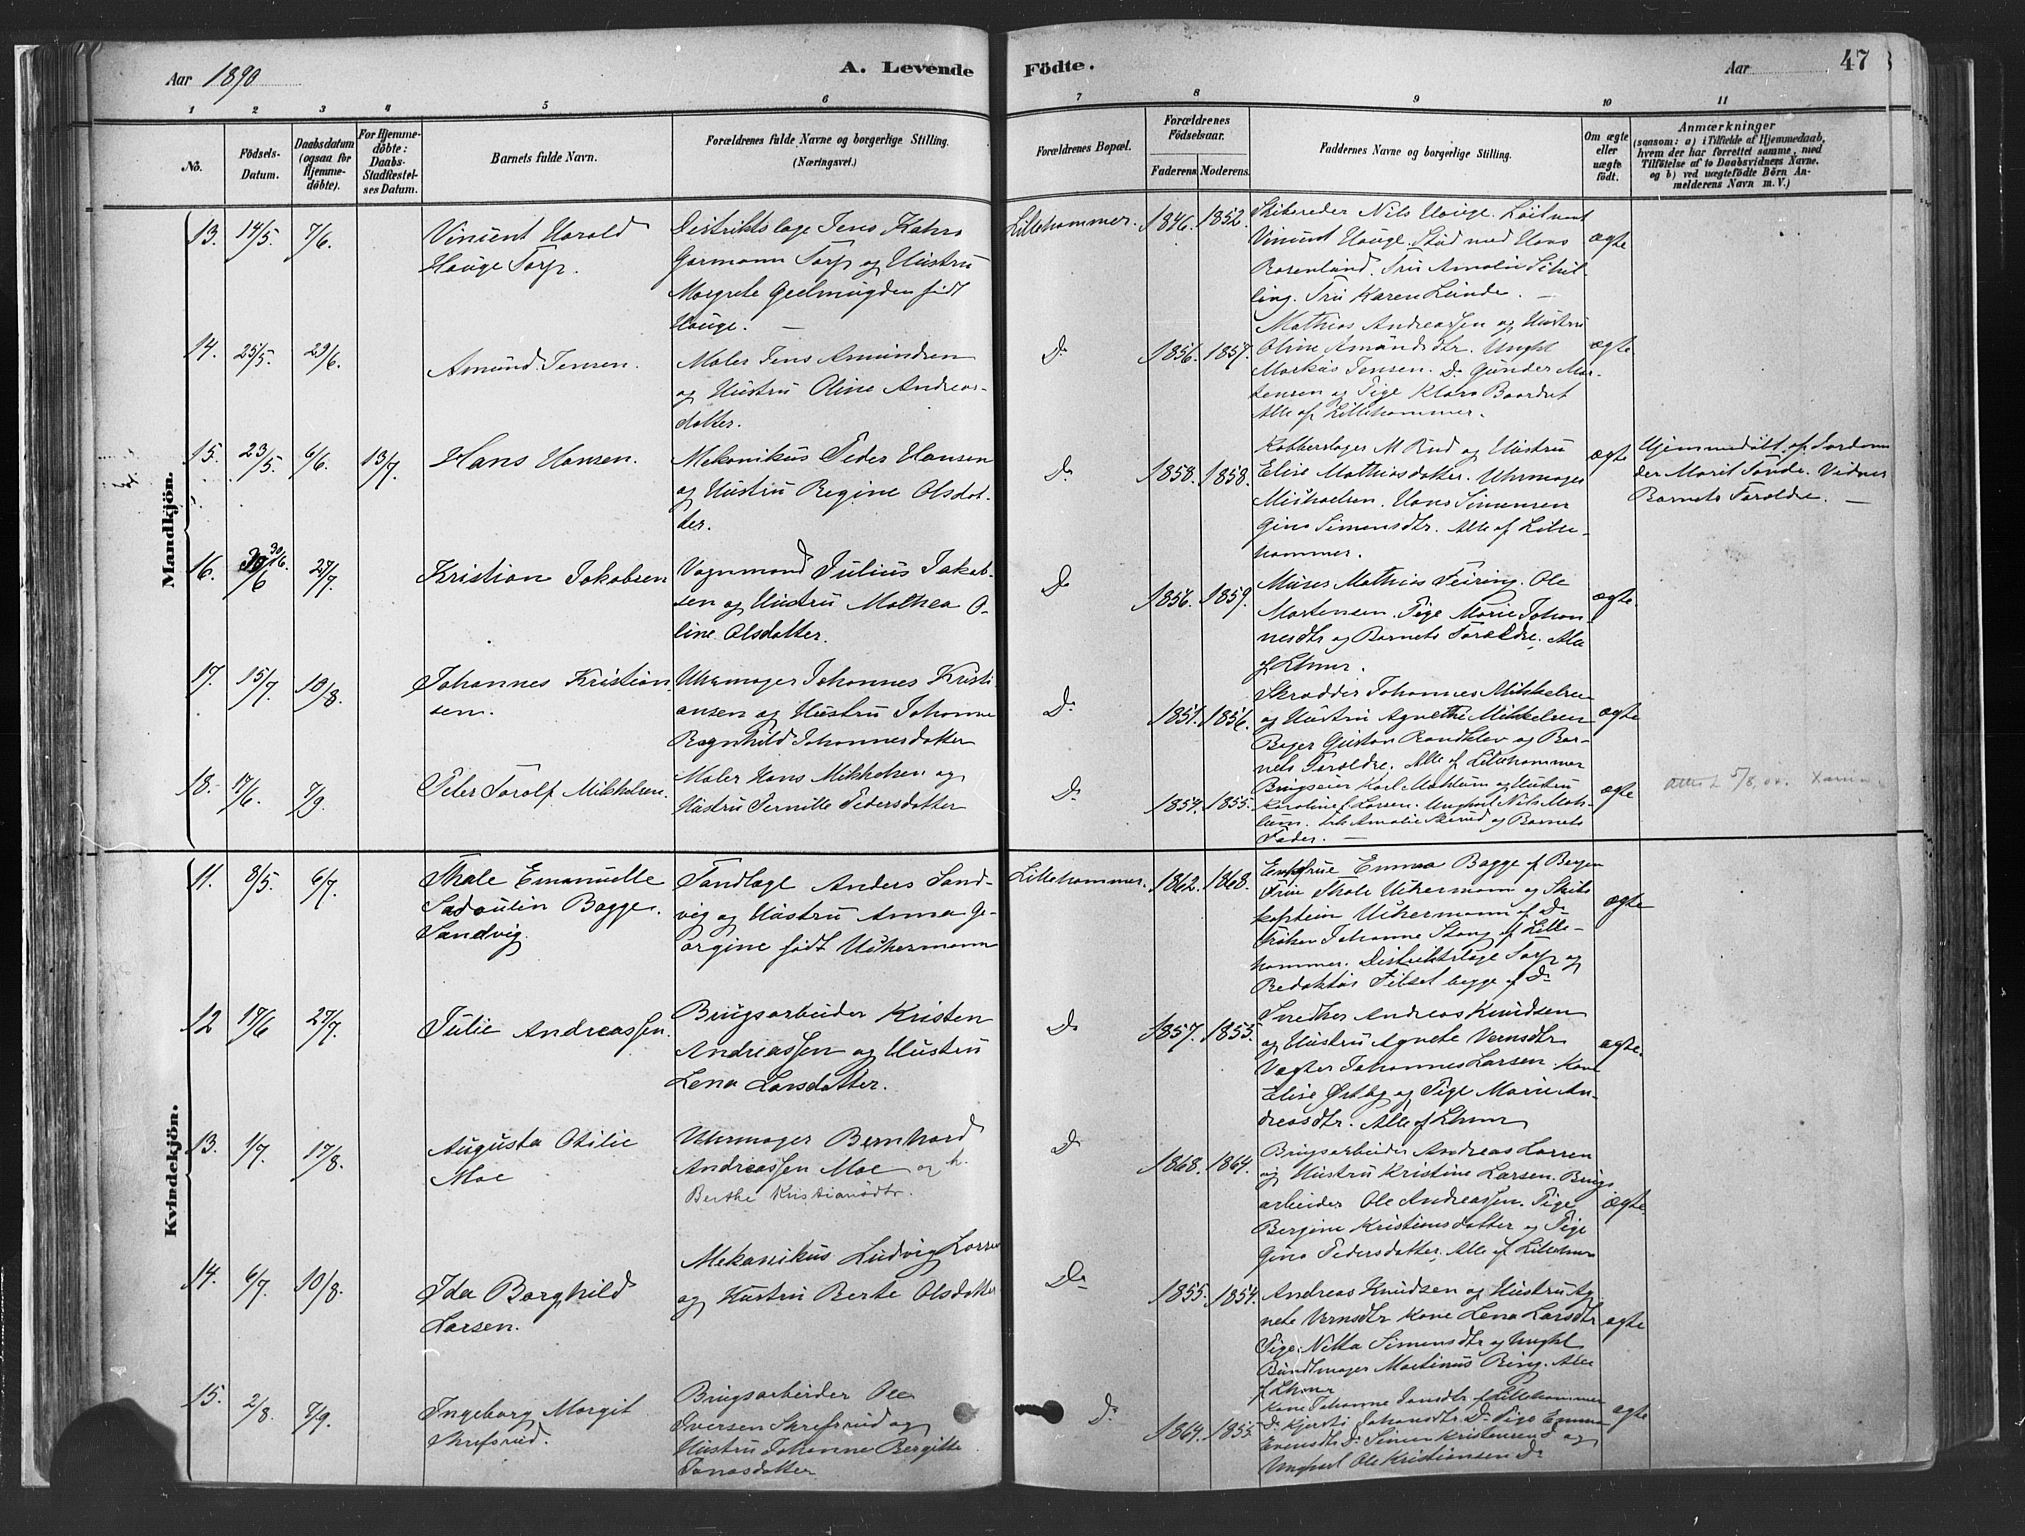 Aar 1890
A. Levende Födte.
Aar
47
1 2 3 4 5 6 7 8 9 10 11
No.
Födsels-Datum.
Daabsdatum (ogsaa for Hjemmedöbte).
For Hjemmedöbte: Daabs-Stadfæstelses Datum.
Barnets fulde Navn.
Forældrenes fulde Navne og borgerlige Stilling. (Næringsvei.)
Forældrenes Bopæl.
Forældrenes Födselsaar.
Faderens.
Moderens.
Faddernes Navne og borgerlige Stilling.
Om ægte eller uægte födt.
Anmærkninger
(saasom: a) i Tilfælde af Hjemmedaab, hvem der har forrettet samme, med Tilföielse af to Daabsvidners Navne, og b) ved uægtefödte Börn Anmelderens Navn m. V.)
Mandkjön.
13. 14/5 7/6.
Vincent Harold
Hauge Torp.
Distriktslæge Jens
Garmann Torp og Hustru
Margrete Geelmuyden født
Hauge.
Lillehammer. 1846. 1852.
Skibsreder Nils Hauge. Løitnant
Vincent Hauge. Stud med Hans
Rosenlund. Fru Amalie Schil-
ling. Fru Karen Lunde.
ægte
14. 25/5. 29/6.
Amund Jensen.
Maler Jens Amundsen
og Hustru Oline Andreas-
datter.
Do 1856. 1857.
Mathias Andreassen og Hustru
Oline Amundsdtr. Unghl
Markus Jensen. Do Gunder Mar-
tensen og Pige Klara Baardset
Alle af Lillehammer.
ægte
15. 23/5. 6/6. 13/7
Hans Hansen.
Mekanikus Peder Hansen
og Hustru Regine Olsdat-
ter.
Do 1858. 1858.
M Rud og Hustru
Elise Mathiasdatter. Uhrmager
Mikaelsen. Hans Simensen
Gina Simensdtr. Alle af Lille-
hammer.
ægte
Hjemmedøbt af Jordemo
der Marit Sønde. Vidner
Barnets Foræld­re.
16. 30/6. 27/7
Kristian Jakobsen
Vognmand Julius Jakob-
sen og Hustru Mathea O-
line Olsdatter.
Do 1856. 1859.
Murer Mathias Feiring. Ole
Martensen. Pige Marie Johan-
nesdtr og Barnets Forældre. Alle
af Lhmer.
ægte.
17. 15/7 10/8.
Johannes Kristian
sen.
Uhrmager Johannes Kristi-
ansen og Hustru Johanne
Ragnhild Johannesdatter
Do 1851. 1856.
Skrædder Johannes Mikkelsen
og Hustru Agnethe Mikkelsen
Bager Gustav Randklev og Bar-
nets Forældre. Alle af Lillehammer
ægte
18. 17/6. 7/9.
Peter Torolf Mikkelsen.
Maler Hans Mikkelsen og
Hustru Pernille Pedersdatter
Do 1854. 1855.
Brugseier Karl Mæhlum og Hustru
Karoline f. Larsen. Ungkarl Nils Mæh-
lum. Frk Amalie Skerud og Barnets
Fader.
ægte
Kvindekjön.
11. 8/5. 6/7.
Thale Emanuelle
Bagge
Sandvig.
Tandlæge Anders Sand-
vig og Hustru Anna Ge-
orgine født Uckermann
Lillehammer. 1862. 1868.
Enkefrue Emma Bagge af Bergen
Frue Thale Uchermann og Skibs
kaptein Uchermann af Do
Frøken Johanne Stang af Lille-
hammer. Distriktslæge Torp og
Redaktør Filset begge af Do
ægte
12 17/6 27/7.
Julie Andreassen.
Brugsarbeider Kristen
Andreassen og Hustru
Lena Larsdatter.
Do 1857. 1855.
Snedker Andreas Knudsen
og Hustru Agnete Vernsdtr
Vægter Johannes Larsen. Kone
Elise Østby og Pige Marie An-
dreasdtr. Alle af Lhmer
ægte.
13. 1/7. 17/8.
Augusta Otilie
Moe
Uhrmager Bernhard
Andreassen Moe og h.
Berthe Kristiansdtr.
Do 1868. 1864.
Brugsarbeider Andreas Larsen
og Hustru Kristine Larsen. Brugs
arbeider Ole Andreassen. Pige
Bergine Kristiansdatter og Pige
Gina Pedersdatter. Alle af Lillehmer
ægte.
14. 6/7. 10/8.
Ida Borghild
Larsen.
Mekanikus Ludvig Larsen
og Hustru Berte Olsdatter
Do 1855. 1854.
Andreas Knudsen og Hustru Ag
nete Vernsdtr Kone Lena Larsdtr
Pige Simensdtr og Unghl
Buntmager Martinus Ring. Alle
af Lhmer
ægte
15. 2/8. 7/9.
Ingeborg Margit
Skrefsrud.
Brugsarbeider Ole
Iversen Skrefsrud og
Hustru Johanne Bergitte
Jonasdatter
Do 1864. 1855.
Kone Johanne Jonsdtr af Lillehammer
Do Kjersti Johansdtr. Do Pige Emma
Evensdtr Do Simen Kristensen Do og
Ungkarl Ole Kristiansen Do
ægte